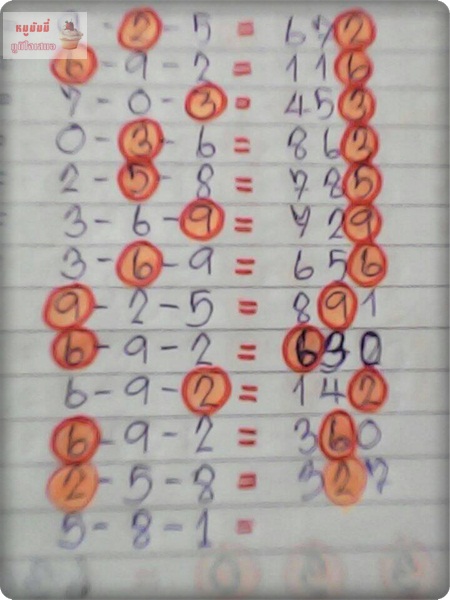 หมูมันนี่
- 2 - 5 = 672
6 - 9 - 2 = 116
7 - 0 - 3 = 453
0 - 3 - 6 = 863
2 - 5 - 8 = 785
3 - 6 - 9 = 729
3 - 6 - 9 = 656
9 - 2 - 5 = 891
6 - 9 - 2 = 630
6 - 9 - 2 = 142
6 - 9 - 2 = 360
2 - 5 - 8 = 327
5 - 8 - 1 =